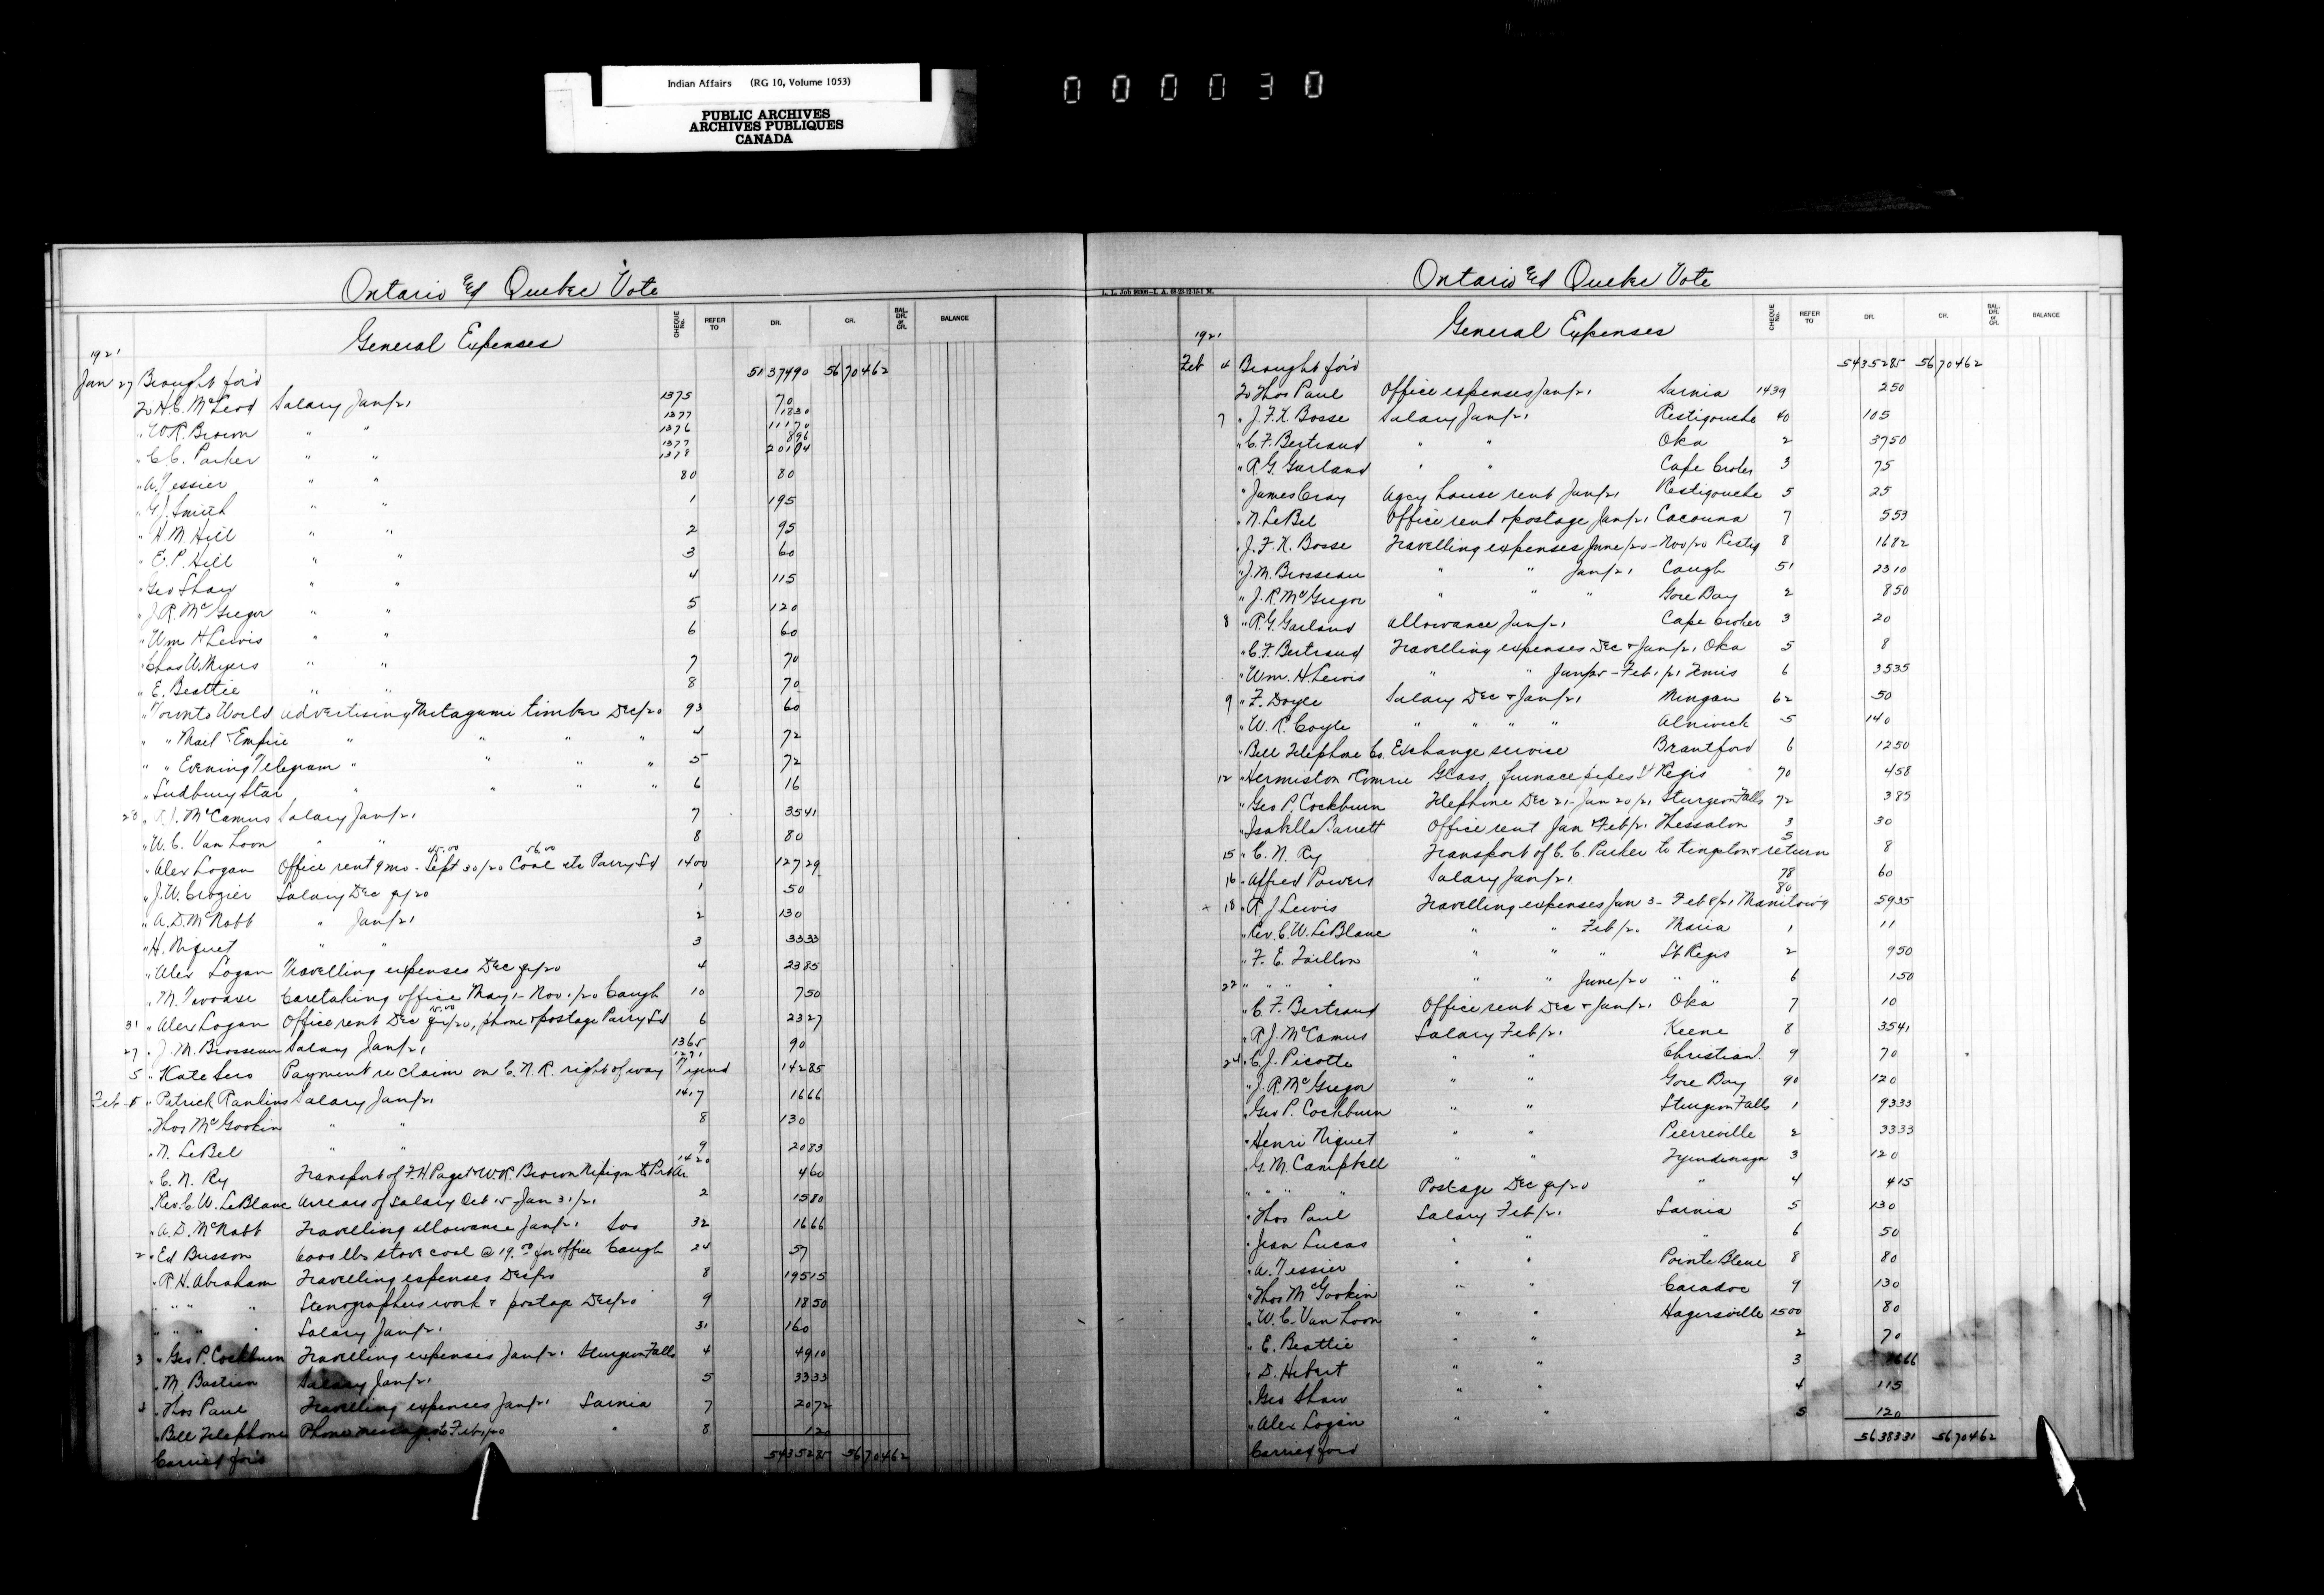 Indian Affairs (RG 10, Volume 1053)
PUBLIC ARCHIVES
ARCHIVES PUBLIQUES
CANADA
000030
Ontario & Quebec Vote
General Expenses
CHEQUE No. REFER TO DR. CR. BAL. DR. or CR. BALANCE
1921
Jan 27 Brought for'd 5137490 5670462
To H.C. McLeod Salary Jan/21 1375 70
1377 1830
" W.R. Brown " " 1376 11170
1377 896
" C.C. Parker " " 1378 20104
" A. Tessier " " 80 80
" G.J. Smith " " 1 195
" H.M. Hill " " 2 95
" E.P. Hill " " 3 60
" Geo Shaw " " 4 115
" J.R. McGregor " " 5 120
" Wm H Lewis " " 6 60
" Chas W. Myers " " 7 70
" E. Beattie " " 8 70
" Toronto World advertising Metagami timber Dec/20 93 60
" " Mail & Empire " " " " 4 72
" " Evening Telegram " " " " 5 72
" Sudbury Star " " " " 6 16
28 " R.J. McCamus Salary Jan/21 7 3541
" W.C. Van Loon " " 8 80
45.00 56.00
" Alex Logan Office rent 9 mo - Sept 30/20 Coal etc Parry Sd 1400 12729
" J.W. Crozier Salary Dec qr/20 1 50
" A.D. McNabb " Jan/21 2 130
" H. Niquet " " 3 3333
" Alex Logan Travelling expenses Dec qr/20 4 2385
" M. Caretaking office May 1 - Nov 1/20 Caugh 10 750
15.00
31 " Alex Logan Office rent Dec qr/20, phone & postage Parry Sd 6 2327
27 " J.M. Brosseau Salary Jan/21 1365 90
1271
5 " Kate Sero Payment re claim on C.N.R. right of way Tyend 14285
Feb 1 " Patrick Rankins Salary Jan/21 1417 1666
" Thos McGookin " " 8 130
" N. LeBel " " 9 2083
" C.N. Ry Transport of F.H. Paget & W.R. Brown Nipigon to Prt Ar. 1420 460
" Rev. C.W. LeBlanc Arrears of salary Oct 15 - Jan 31/21 2 1580
" A.D. McNabb Travelling allowance Jan/21 Soo 32 1666
2 " Ed Busson 6000 lbs stove coal @ 19.00 for office Caugh 24 57
" R.H. Abraham Travelling expenses Dec/20 8 19515
" " " " Stenographers work & postage Dec/20 9 1850
" " " " Salary Jan/21 31 160
3 " Geo P. Cockburn Travelling expenses Jan/21 Sturgeon Falls 4 4910
" M. Bastien Salary Jan/21 5 3333
4 " Thos Paul Travelling expenses Jan/21 Sarnia 7 2072
" Bell Telephone Phone messages to Feb 1/20 " 8 120
Carried for'd 5435285 5670462
Ontario & Quebec Vote
General Expenses
CHEQUE No. REFER TO DR. CR. BAL. DR. or CR. BALANCE
1921
Feb 4 Brought for'd 5435285 5670462
To Thos Paul Office expenses Jan/21 Sarnia 1439 250
7 " J.F.X. Bosse Salary Jan/21 Restigouche 40 105
" C.F. Bertrand " " Oka 2 3750
" R.G. Garland " " Cape Croker 3 75
" James Gray agcy house rent Jan/21 Restigouche 5 25
" N. LeBel Office rent & postage Jan/21 Cacouna 7 553
" J.F.X. Bosse Travelling expenses June/20 - Nov/20 Restig 8 1682
" J.M. Brosseau " " Jan/21 Caugh 51 2310
" J.R. McGregor " " " Gore Bay 2 850
8 " R.G. Garland allowance Jan/21 Cape Croker 3 20
" C.F. Bertrand Travelling expenses Dec & Jan/21 Oka 5 8
" Wm. H Lewis " " Jan/25 - Feb 1/21 Temis 6 3535
9 " F. Doyle Salary Dec & Jan/21 Mingan 62 50
" W.R. Coyle " " " " Alnwick 5 140
" Bell Telephone Co. Exchange service Brantford 6 1250
12 " Hermiston Comrie Glass, furnace pipes St Regis 70 458
" Geo P. Cockburn Telephone Dec 21 - Jan 20/21 Sturgeon Falls 72 385
" Isabella Barrett Office rent Jan & Feb/21 Thessalon 3 30
15 " C.N. Ry Transport of C.C. Parker to Kingston & return 5 8
16 " Alfred Powers Salary Jan/21 78 60
+ 18 " R.J. Lewis Travelling expenses Jan 3 - Feb 8/21 Manitowg 80 5935
" Rev. C.W. LeBlanc " " Feb/21 Maria 1 11
" F.E. Taillon " " " St Regis 2 950
22 " " " " " " June/20 " " 6 150
" C.F. Bertrand Office rent Dec & Jan/21 Oka 7 10
" R.J. McCamus Salary Feb/21 Keene 8 3541
24 " C.J. Picotte " " Christian I. 9 70
" J.R. McGregor " " Gore Bay 90 120
" Geo P. Cockburn " " Sturgeon Falls 1 9333
" Henri Niquet " " Pierreville 2 3333
" G.M. Campbell " " Tyendinaga 3 120
" " " " Postage Dec qr/20 " 4 415
" Thos Paul Salary Feb/21 Sarnia 5 130
" Jean Lucas " " " 6 50
" A. Tessier " " Pointe Bleue 8 80
" Thos McGookin " " Caradoc 9 130
" W.C. Van Loon " " Hagersville 1500 80
" E. Beattie " " 2 70
" D. Hebert " " 3 1666
" Geo Shaw " " 4 115
" Alex Logan " " 5 120
Carried ford 5638331 5670462